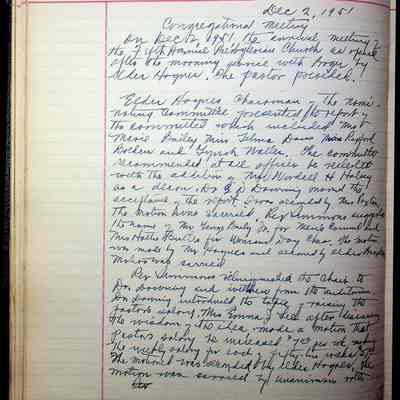 Dec 2, 1951
Congregational Meeting
On Dec 2 1951, the annual meeting of
the Fifth Avenue Presbyterian Church was opened
after the morning service with prayer by
Elder Haynes. The pastor presided.
Elder Haynes Chairman of the nomi-
nating Committee presented the report of
the committee which included Mrs
Marie Bailey Miss Selma Davis
and Walter. The committee
recommended that all officers be reelected
with the addition of Mrs Wordell H Halsey
as a deacon. Dr G D Downing moved the
acceptance of the report. It was seconded by Mrs
The motion was carried. Rev Simmons suggested
the name of Mr George Baily Jr. for Men's Council and
Mrs Hattie for Womans Day Chair. The motion
was made by Mr Haynes and seconded by elder
Motion was carried.
Rev Simmons relinquished the chair to
Dr. Downing and withdrew from the auditorium.
Dr. Downing introduced the topic of raising the
pastor's salary. Mrs Emma J Lee after discussing
the wisdom of the idea made a motion that
Pastor's salary be increased per wk making
the weekly salary for each of fifty-two weeks
The motion was seconded by Elder Haynes, the
motion was carried by unanimous vote.